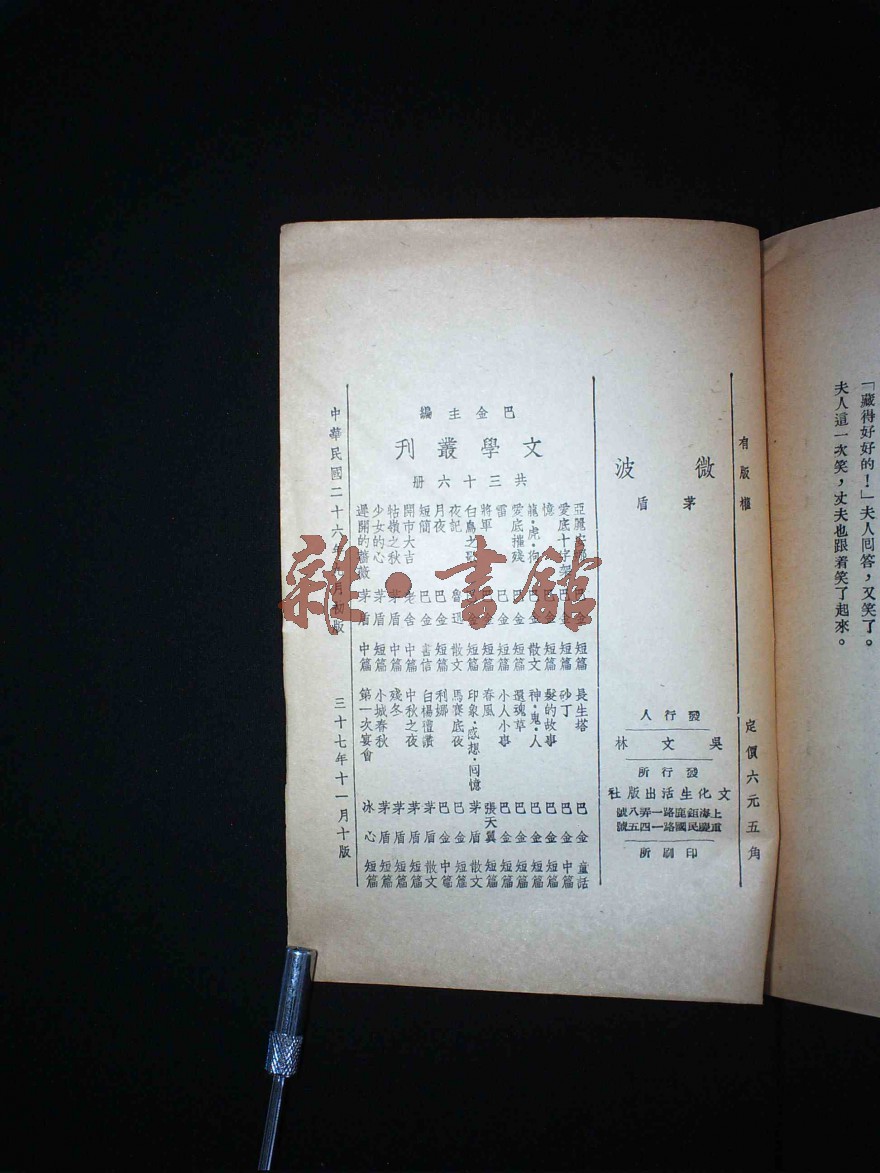 「藏得好好的!」夫人回答,又笑了。
夫人這一次笑,丈夫也跟着笑了起來。
有版權 定價六元五角
微波
茅盾
發行人
吳文林
發行所
文化生活出版社
上海鉅鹿路一弄八號
重慶民國路一四五號
印刷所
巴金主編
文學叢刊
共三十六册
亞麗安娜 巴金 短篇
愛底十字架 巴金 短篇
憶 巴金 短篇
龍·虎·狗 巴金 散文
愛底摧殘 巴金 短篇
雷 巴金 短篇
將軍 巴金 短篇
白鳥之歌 金 短篇
夜記 魯迅 散文
月夜 巴金 短篇
短簡 巴金 書信
開市大吉 老舍 中篇
牯嶺之秋 茅盾 中篇
少女的心 茅盾 短篇
遲開的薔薇 茅盾 中篇
長生塔 巴金 童話
砂丁 巴金 中篇
髮的故事 巴金 短篇
神·鬼·人 巴金 短篇
還魂草 巴金 短篇
小人小事 巴金 短篇
春風 張天翼 短篇
印象·感想·回憶 茅盾 散文
馬賽底夜 巴金 短篇
利娜 巴金 中篇
白楊禮讚 茅盾 散文
中秋之夜 茅盾 短篇
殘冬 茅盾 短篇
小城春秋 茅盾 短篇
第一次宴會 冰心 短篇
中華民國二十六年月初版 三十七年十一月十版
雜·書館